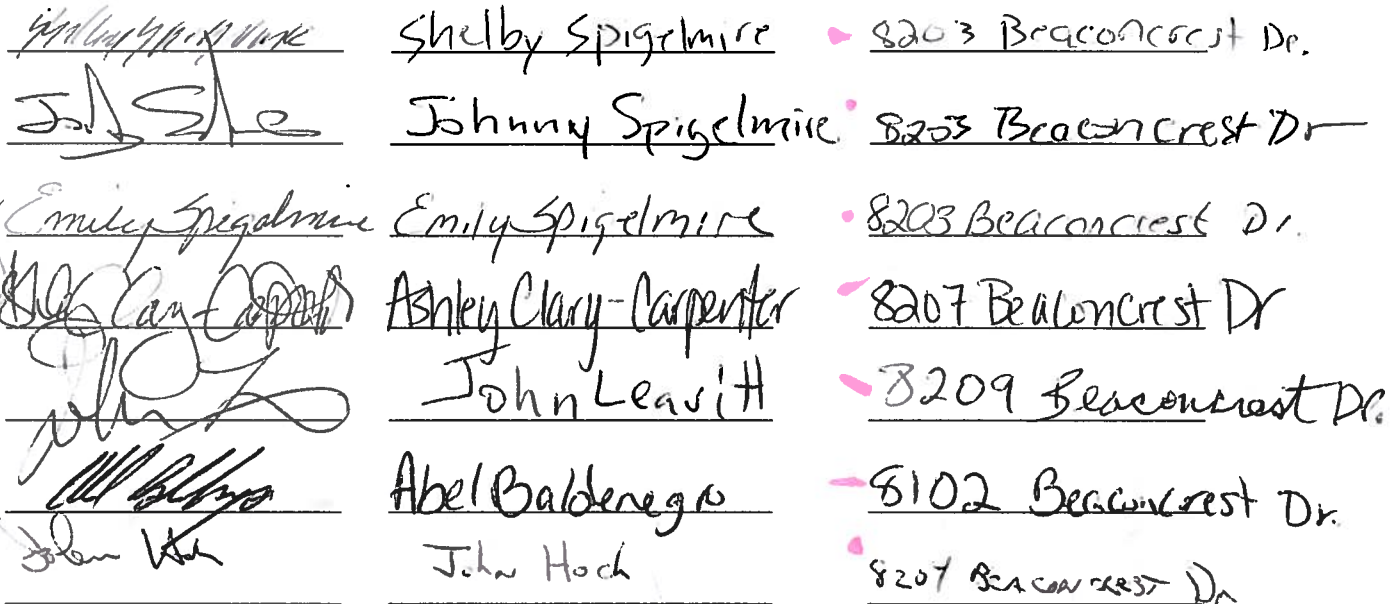 Shelby Spigelmire Shelby Spigelmire 8203 Beaconcrest Dr.
Johnny Spigelmire 8203 Beaconcrest Dr
Emily Spigelmire Emily Spigelmire 8203 Beaconcrest Dr.
Ashley Clary-Carpenter Ashley Clary-Carpenter 8207 Beaconcrest Dr
John Leavitt 8209 Beaconcrest Dr.
Abel Baldenegro 8102 Beaconcrest Dr.
John Hoch John Hoch BEACONCREST Dr